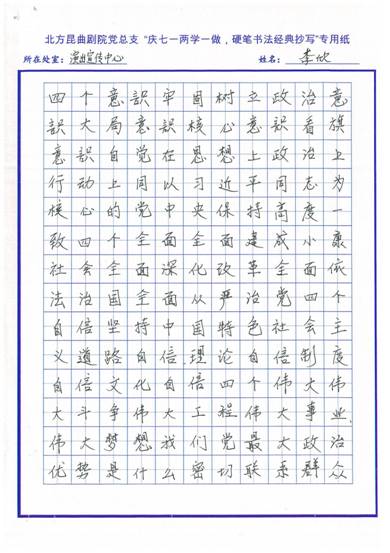 北方昆曲剧院党总支 "庆七一两学一做，硬笔书法经典抄写"专用纸
所在处室：演出宣传中心 姓名：李欣
四个意识牢固树立政治意
识大局意识核心意识看旗
意识自觉在思想上政治上
行动上同以习近平同志为
核心的党中央保持高度一
致四个全面全面建成小康
社会全面深化改革全面依
法治国全面从严治党四个
自信坚持中国特色社会主
义道路自信.理论自信制度
自信文化自信四个伟大伟
大斗争伟大工程伟大事业.
伟大梦想我们党最大政治
优势是什么密切联系群众